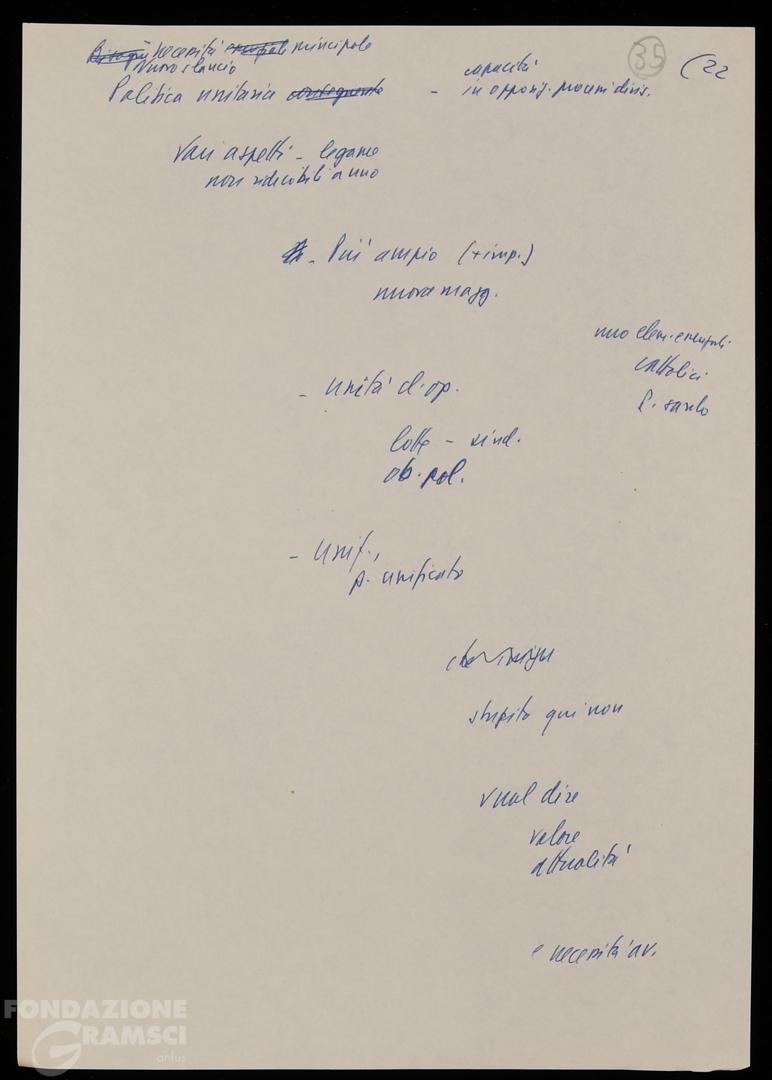 necessità principale
nuovo slancio
35
(22
Politica unitaria - capacità
in opposiz. processi divis.
Vari aspetti - legame
non riducibili a uno
- Più ampio (+ imp.)
nuova magg.
cattolici
- unità d. op.
lotte - sind.
ob. pol.
- Unif.,
p. unificato
stupito qui non
vuol dire
valore
attualità
e necessità av.
FONDAZIONE
GRAMSCI
onlus